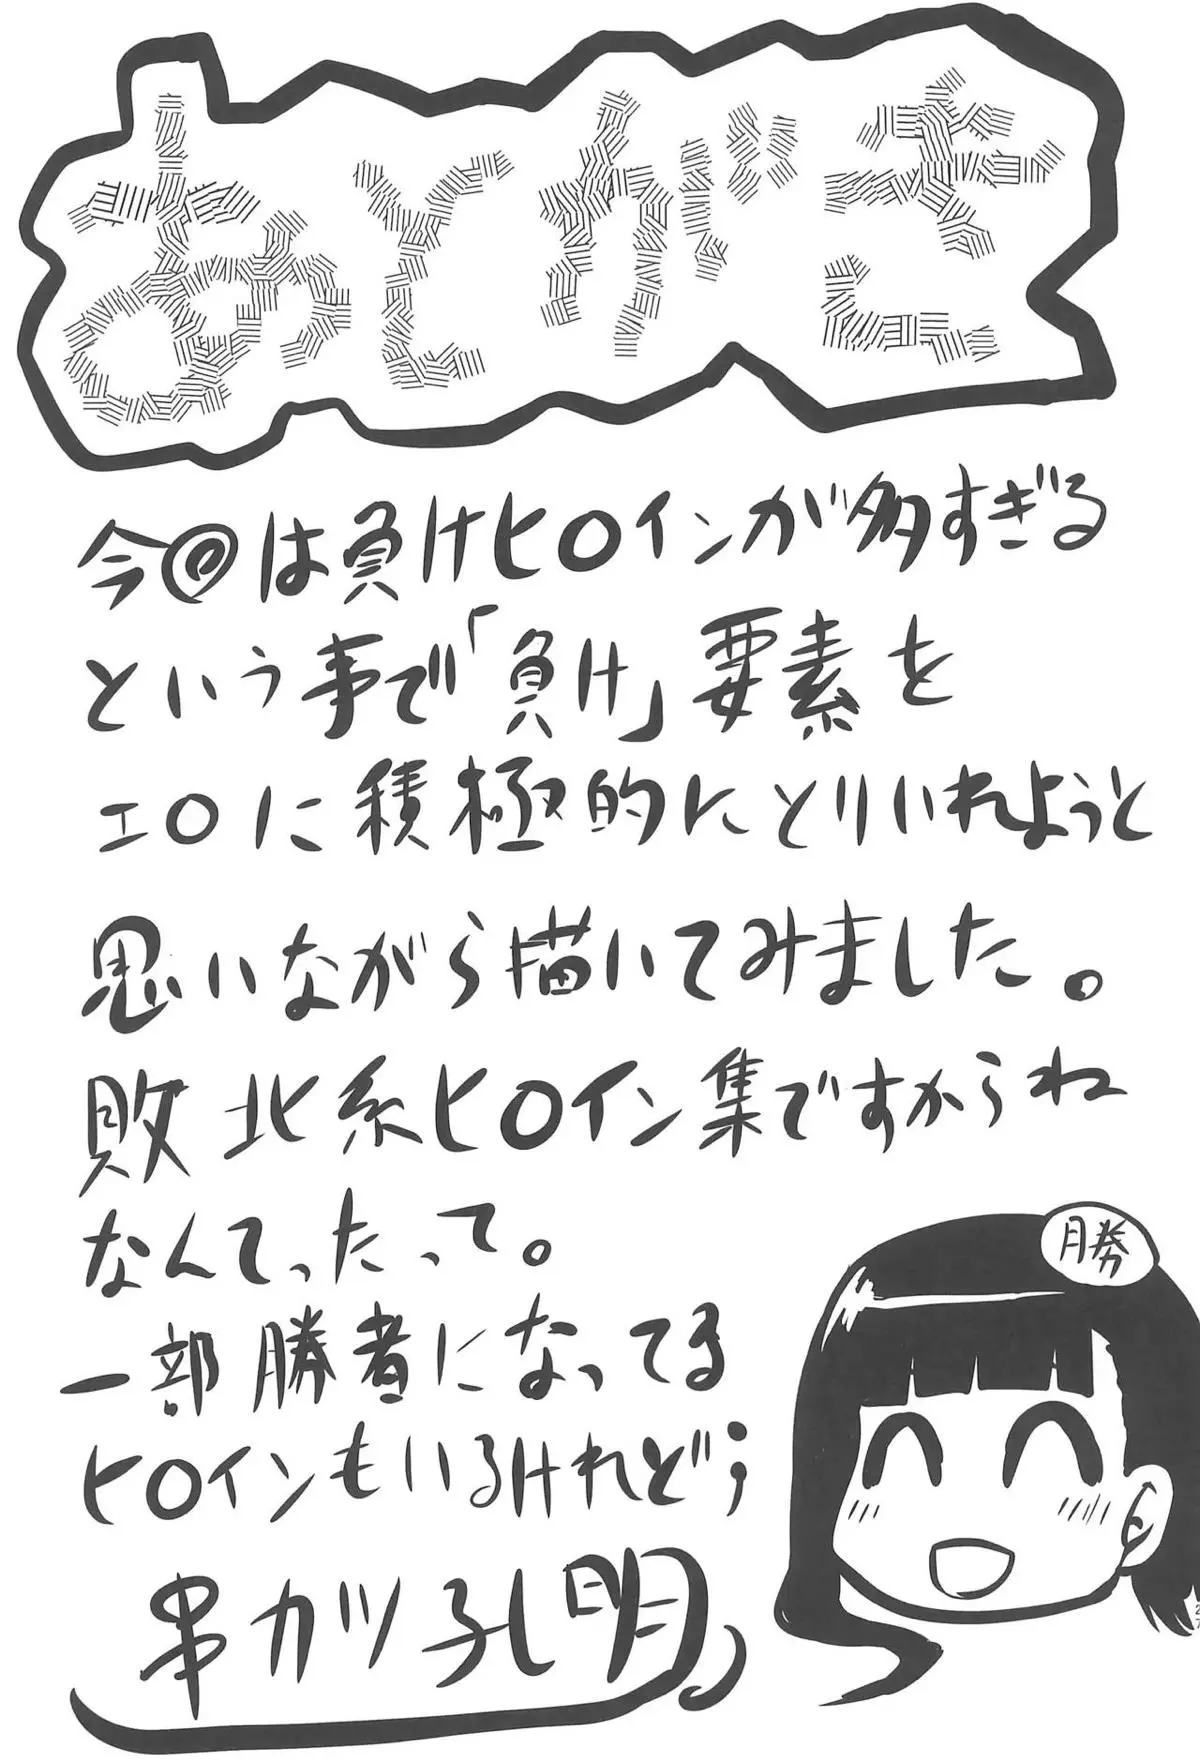 あとがき
今回は負けヒロインが多すぎる
という事で「負け」要素を
エロに積極的にとりいれようと
思いながら描いてみました。
敗北系ヒロイン集ですからね
なんてったって。
一部勝者になってる
ヒロインもいるけれど；
串カツ孔明
勝
27